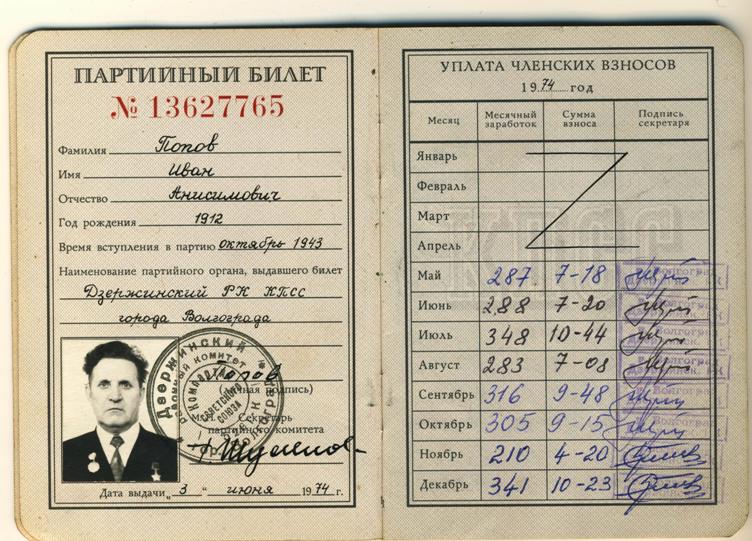 ПАРТИЙНЫЙ БИЛЕТ
№ 13627765
Фамилия Попов
Имя Иван
Отчество Анисимович
Год рождения 1912
Время вступления в партию октябрь 1943
Наименование партийного органа, выдавшего билет
Дзержинский РК КПСС
города Волгограда
Попов
(личная подпись)
М.П. Секретарь
партийного комитета
Дата выдачи „3“ июня 1974 г.
УПЛАТА ЧЛЕНСКИХ ВЗНОСОВ
1974 год
Месяц Месячный заработок Сумма взноса Подпись секретаря
Январь
Февраль
Март
Апрель
Май 287 7-18
Июнь 288 7-20
Июль 348 10-44
Август 283 7-08
Сентябрь 316 9-48
Октябрь 305 9-15
Ноябрь 210 4-20
Декабрь 341 10-23
КПСС